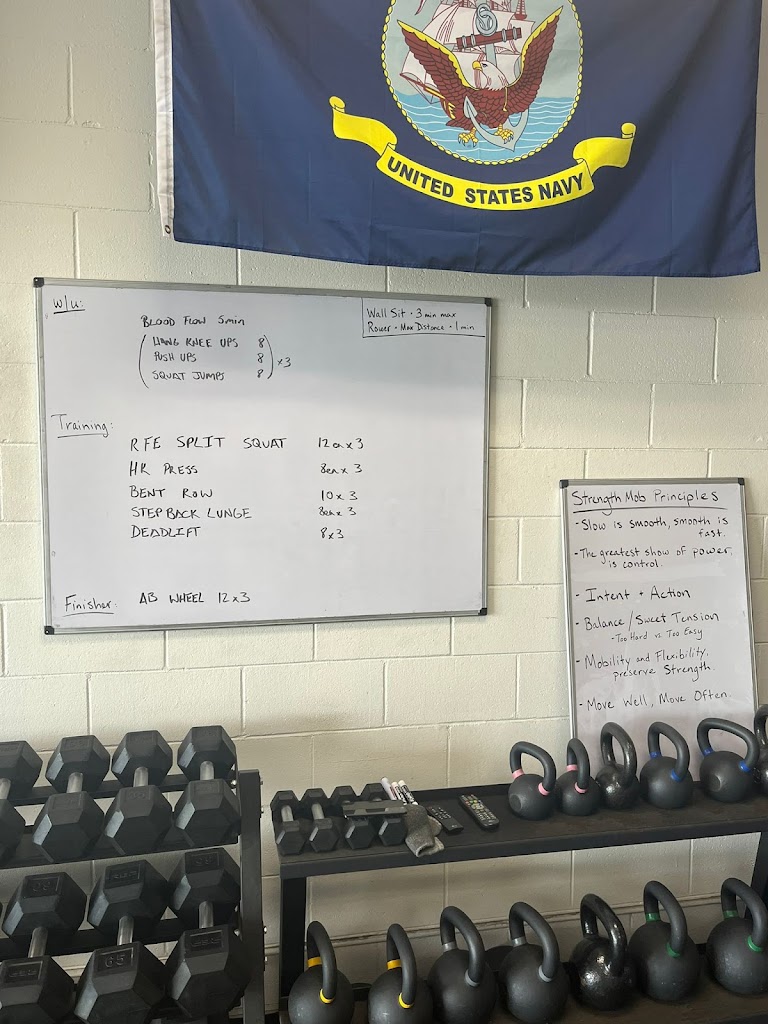 UNITED STATES NAVY
W/U:
BLOOD FLOW 5min
HANG KNEE UPS 8
PUSH UPS 8
SQUAT JUMPS 8
x3
Wall Sit • 3 min max
Rower • Max Distance • 1 min
Training:
RFE SPLIT SQUAT 12ea x 3
HK PRESS 8ea x 3
BENT ROW 10 x 3
STEP BACK LUNGE 8ea x 3
DEADLIFT 8x3
Finisher: AB WHEEL 12x3
StrengthMob Principles
- Slow is smooth, smooth is
fast.
- The greatest show of power,
is control.
- Intent + Action
- Balance/Sweet Tension
- Too Hard vs. Too Easy
- Mobility and Flexibility,
preserve Strength.
- Move Well, Move Often.
65